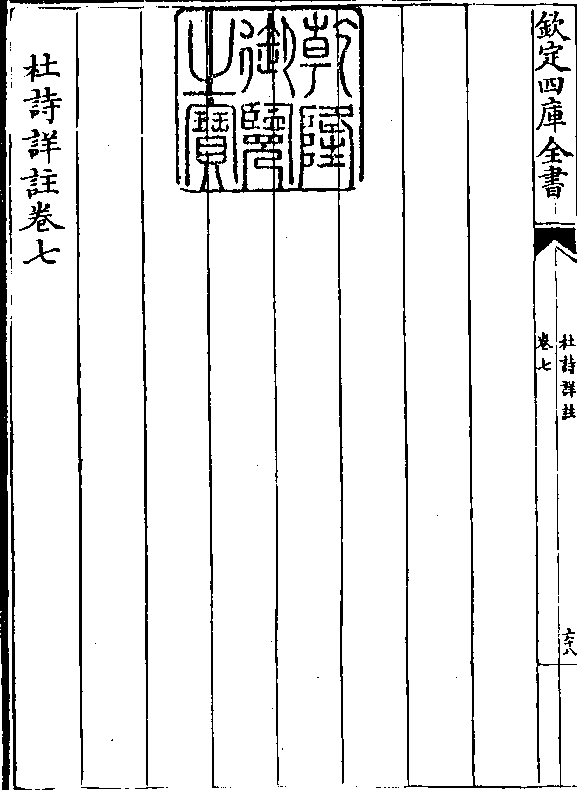 欽定四庫全書
杜詩詳註
卷七
六十八
乾隆
御覽
之寶
杜詩詳註卷七